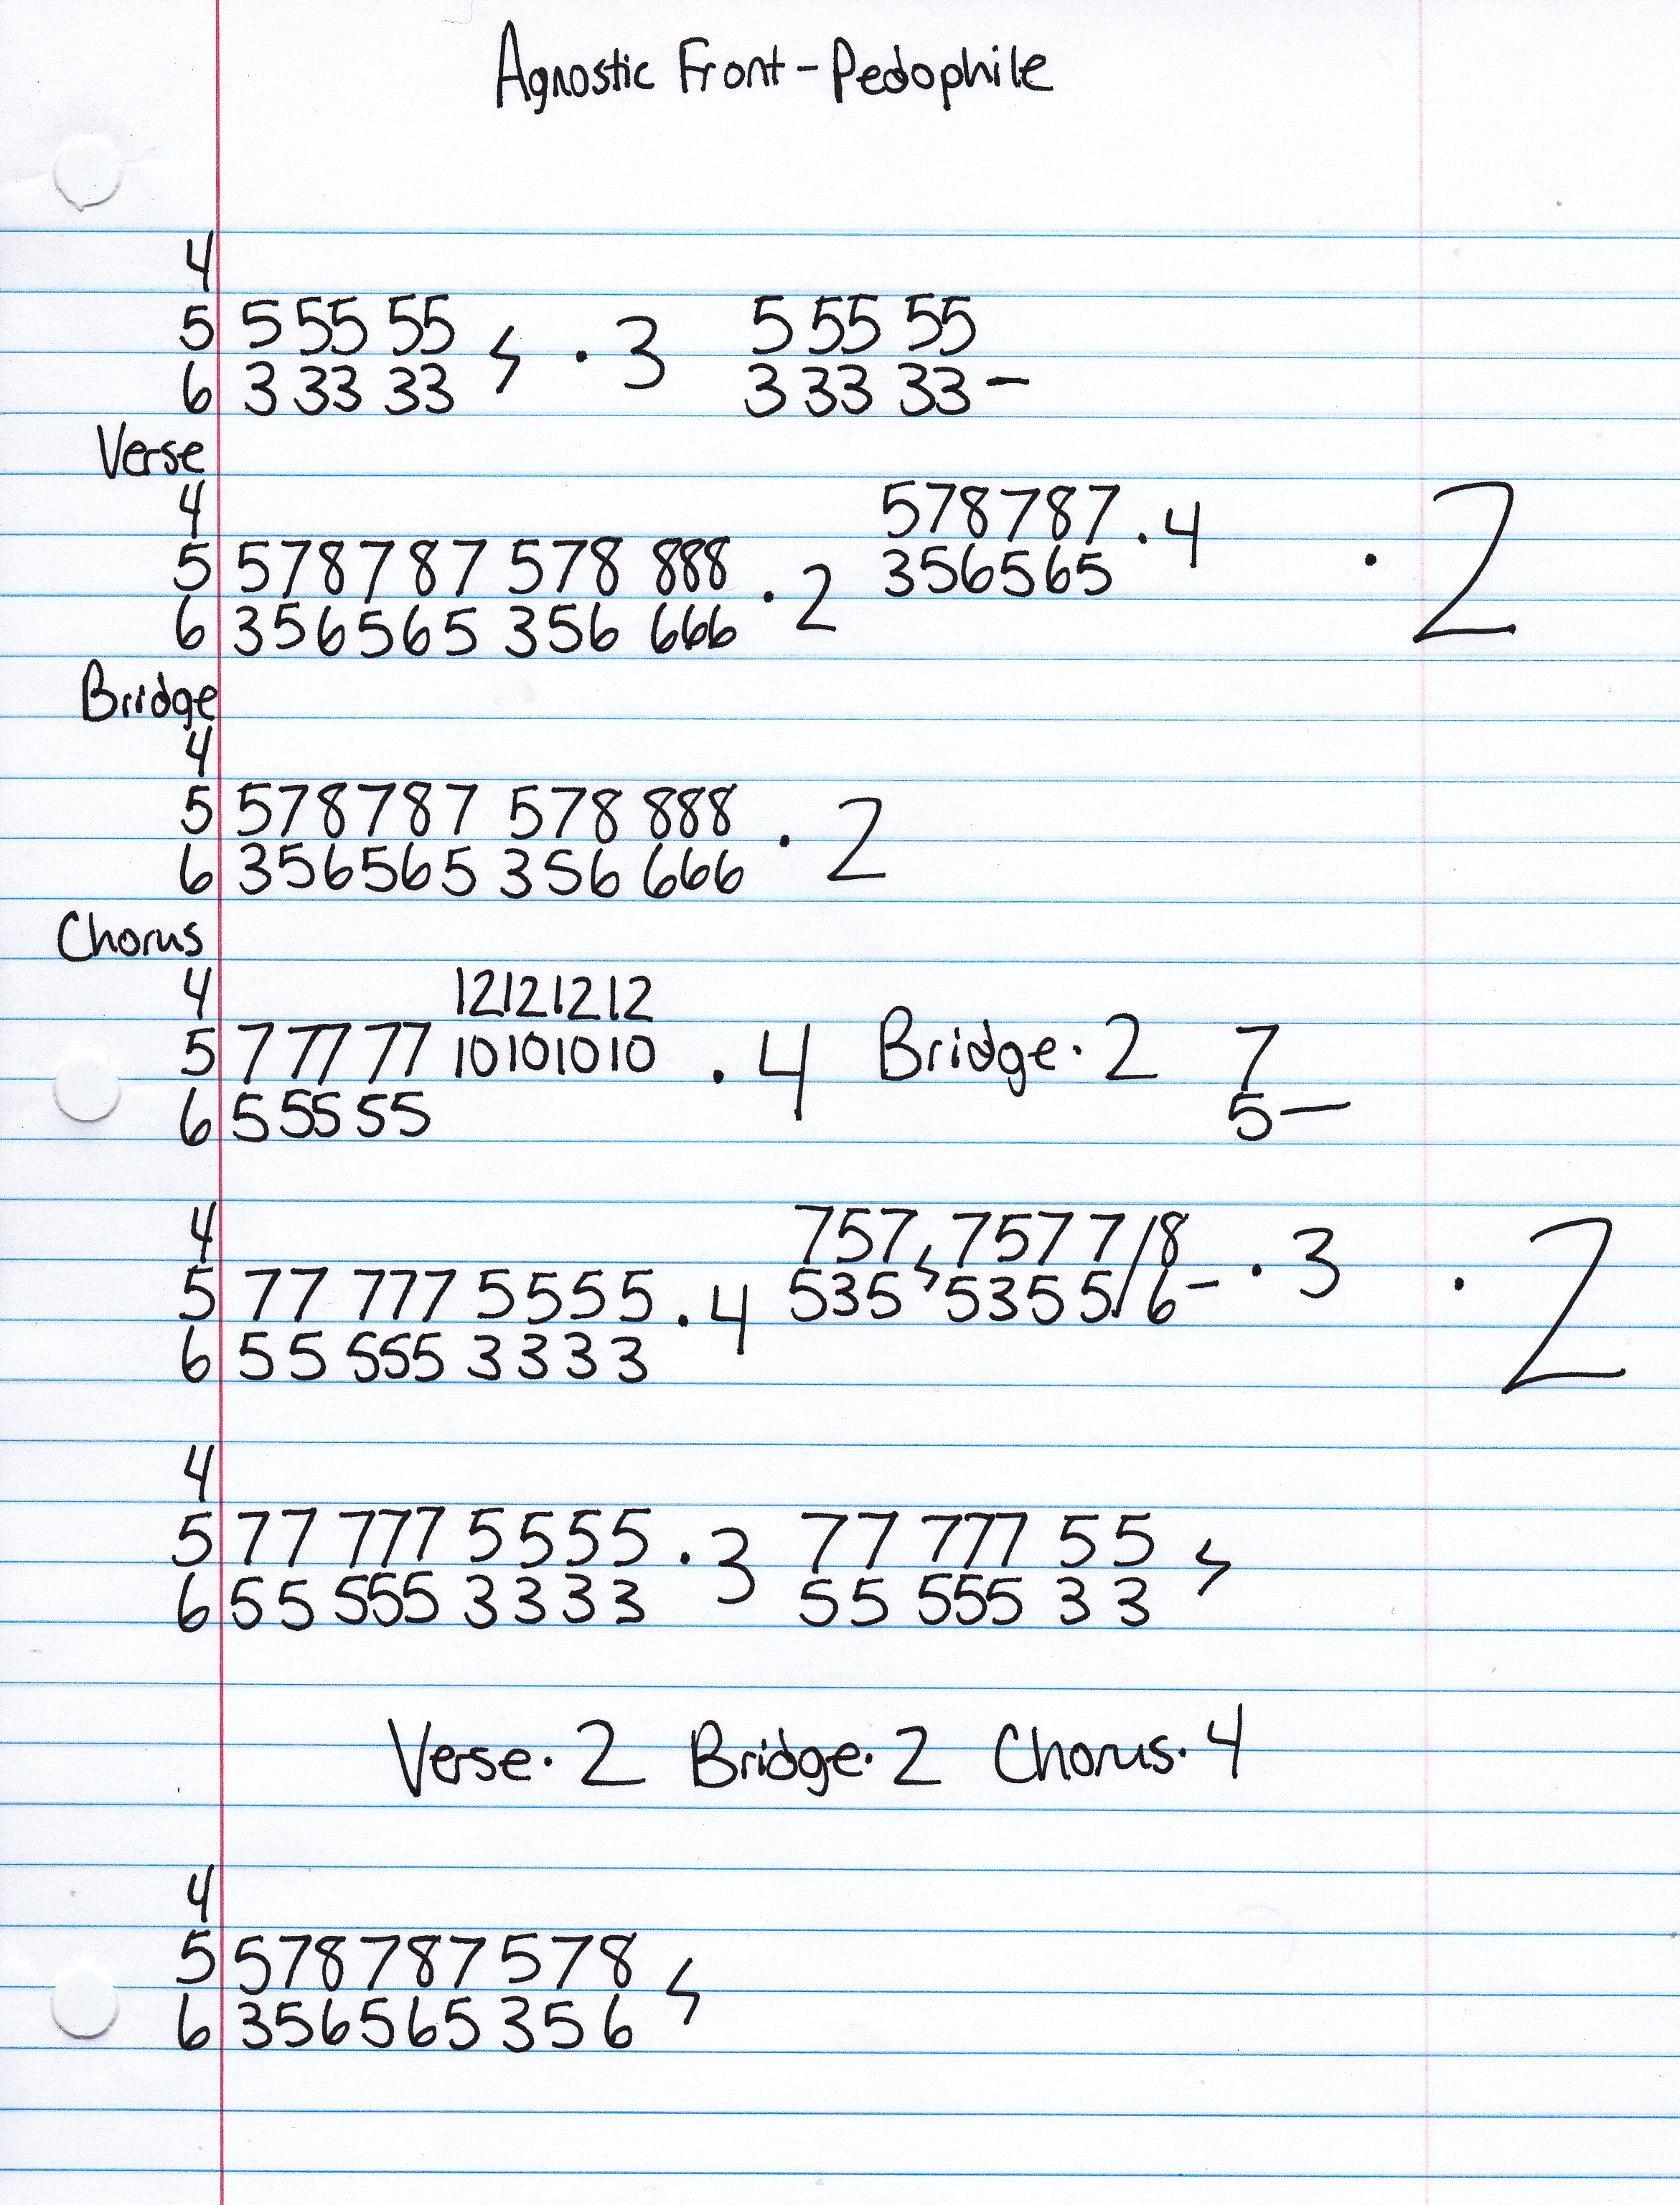 Agnostic Front - Pedophile
4
5 5 55 55 5 55 55
6 3 33 33 · 3 3 33 33 -
Verse
4 578787 · 4
5 578787 578 888 356565 · 2
6 356565 356 666 · 2
Bridge
4
5 578787 578 888
6 356565 356 666 · 2
Chorus
4 12121212
5 7 77 77 10101010 · 4 Bridge · 2 7
6 5 55 55 5 —
4 757 7577/8
5 77 777 5555 · 4 535 5355/6 - · 3 · 2
6 55 555 3333
4
5 77 777 5555 · 3 77 777 55
6 55 555 3333 55 555 33
Verse · 2 Bridge · 2 Chorus · 4
4
5 578787 578
6 356565 356